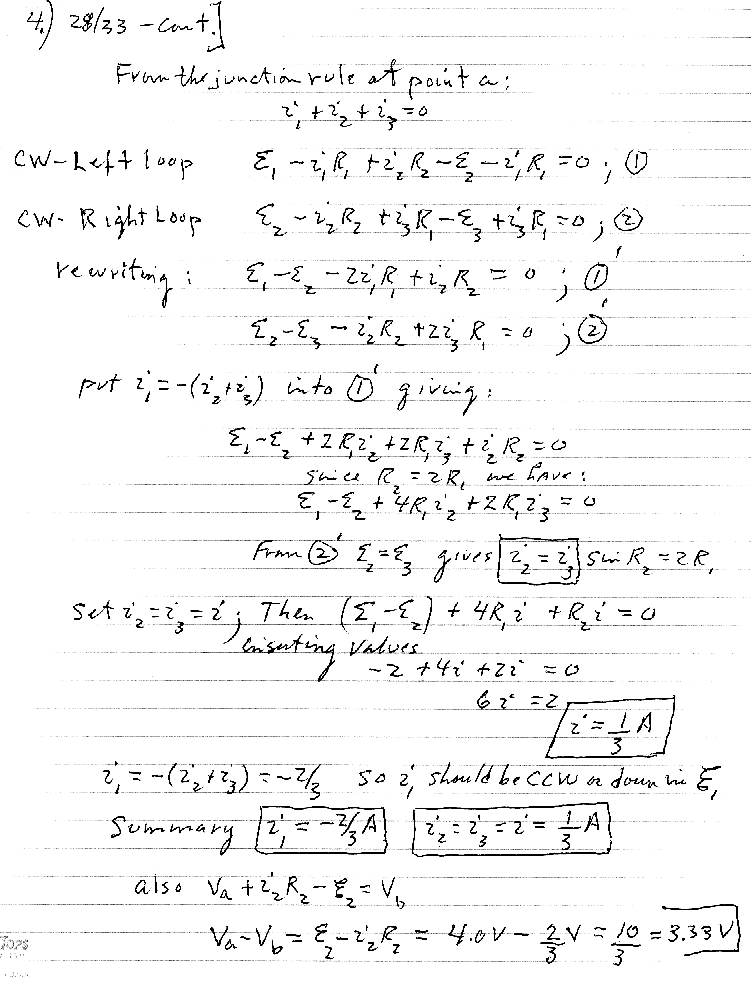 4.) 28/33 - cont.]
From the junction rule at point a:
i₁ + i₂ + i₃ = 0
CW-Left loop ℰ₁ - i₁R₁ + i₂R₂ - ℰ₂ - i₁R₁ = 0 ; ①
CW-Right Loop ℰ₂ - i₂R₂ + i₃R₁ - ℰ₃ + i₃R₁ = 0 ; ②
rewriting : ℰ₁ - ℰ₂ - 2i₁R₁ + i₂R₂ = 0 ; ①'
ℰ₂ - ℰ₃ - i₂R₂ + 2i₃R₁ = 0 ; ②'
put i₁ = -(i₂+i₃) into ①' giving :
ℰ₁ - ℰ₂ + 2R₁i₂ + 2R₁i₃ + i₂R₂ = 0
since R₂ = 2R₁ we have :
ℰ₁ - ℰ₂ + 4R₁i₂ + 2R₁i₃ = 0
From ②' ℰ₂ = ℰ₃ gives i₂ = i₃ sin R₂ = 2R₁
Set i₂ = i₃ = i ; Then (ℰ₁ - ℰ₂) + 4R₁i + R₂i = 0
inserting values
-2 + 4i + 2i = 0
6i = 2
i = 1/3 A
i₁ = -(i₂+i₃) = -2/3 so i₁ should be CCW or down in ℰ₁
Summary i₁ = -2/3 A i₂ = i₃ = i = 1/3 A
also Va + i₂R₂ - ℰ₂ = Vb
Va - Vb = ℰ₂ - i₂R₂ = 4.0V - 2/3 V = 10/3 = 3.33 V
TOPS